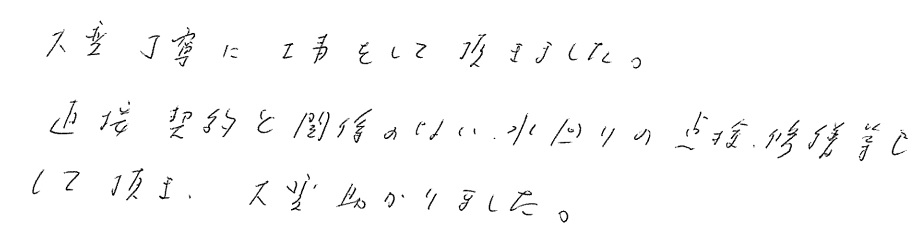 大変丁寧に工事をして頂きました。
直接契約と関係のない、水回りの点検、修繕等も
して頂き、大変助かりました。